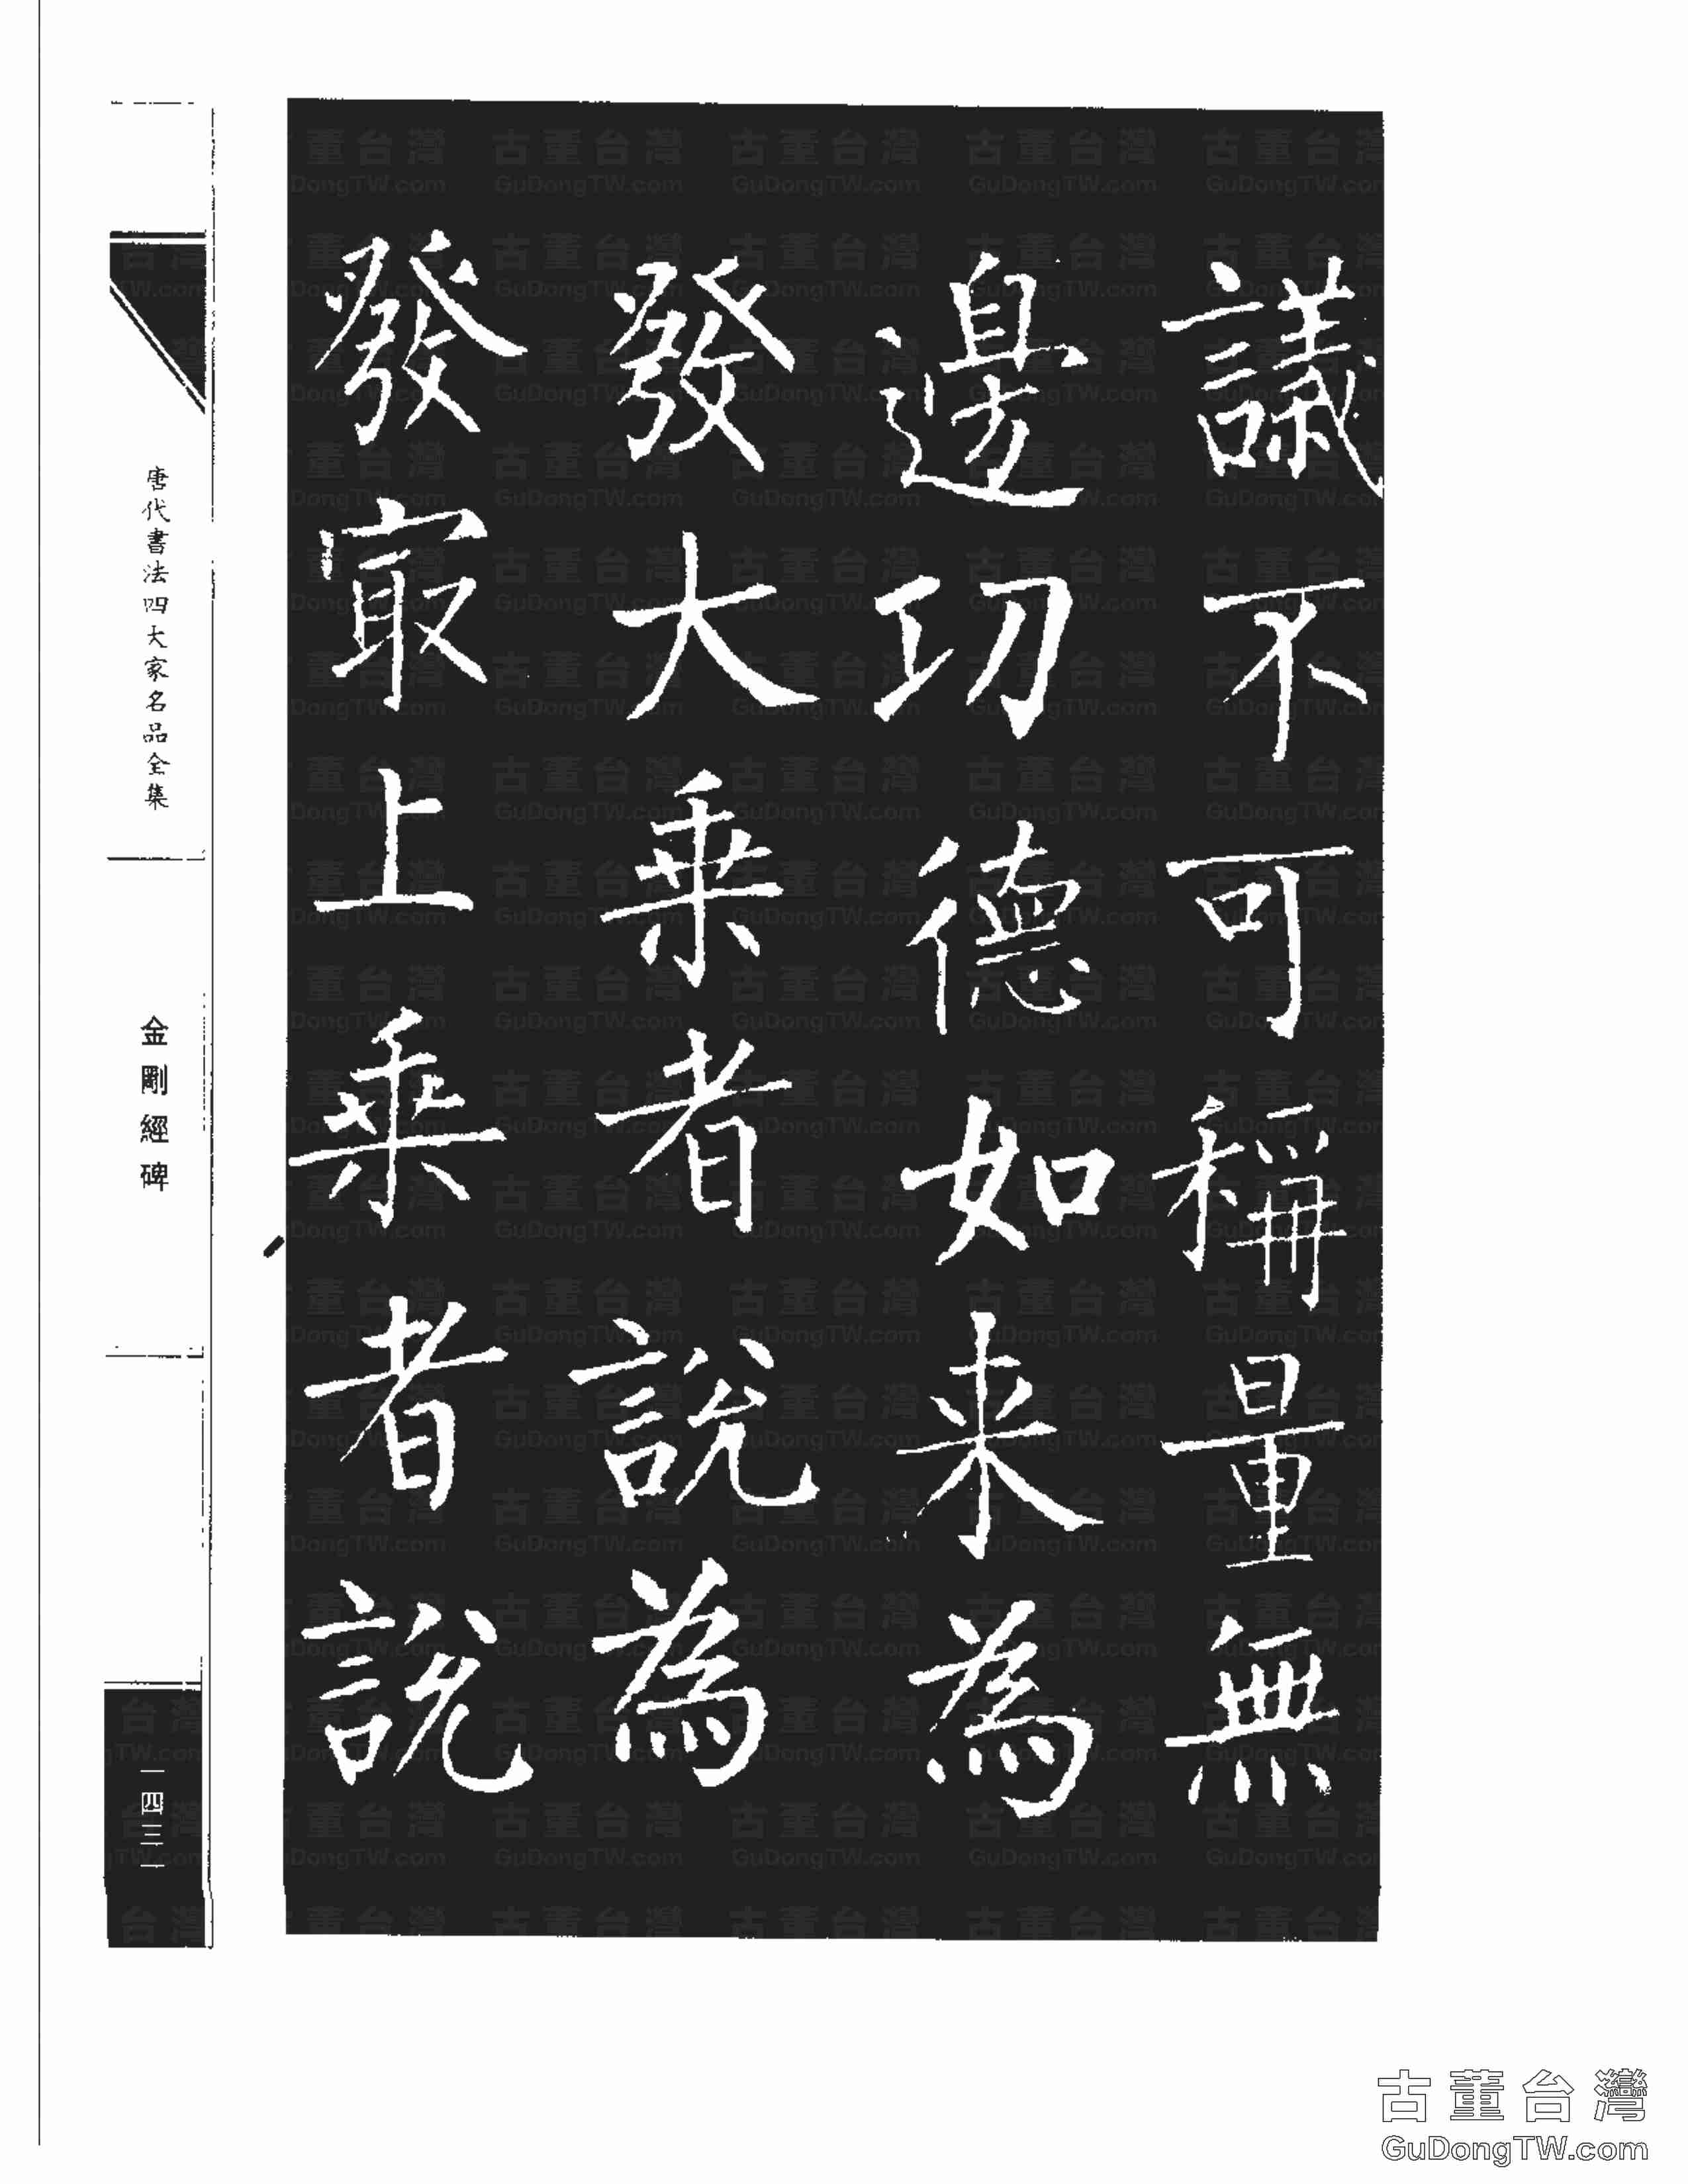 議不可稱量無
邊功德如来為
發大乗者說為
發冣上乗者說
唐代書法四大家名品全集
金剛經碑
一四三一
古董台灣
GuDongTW.com